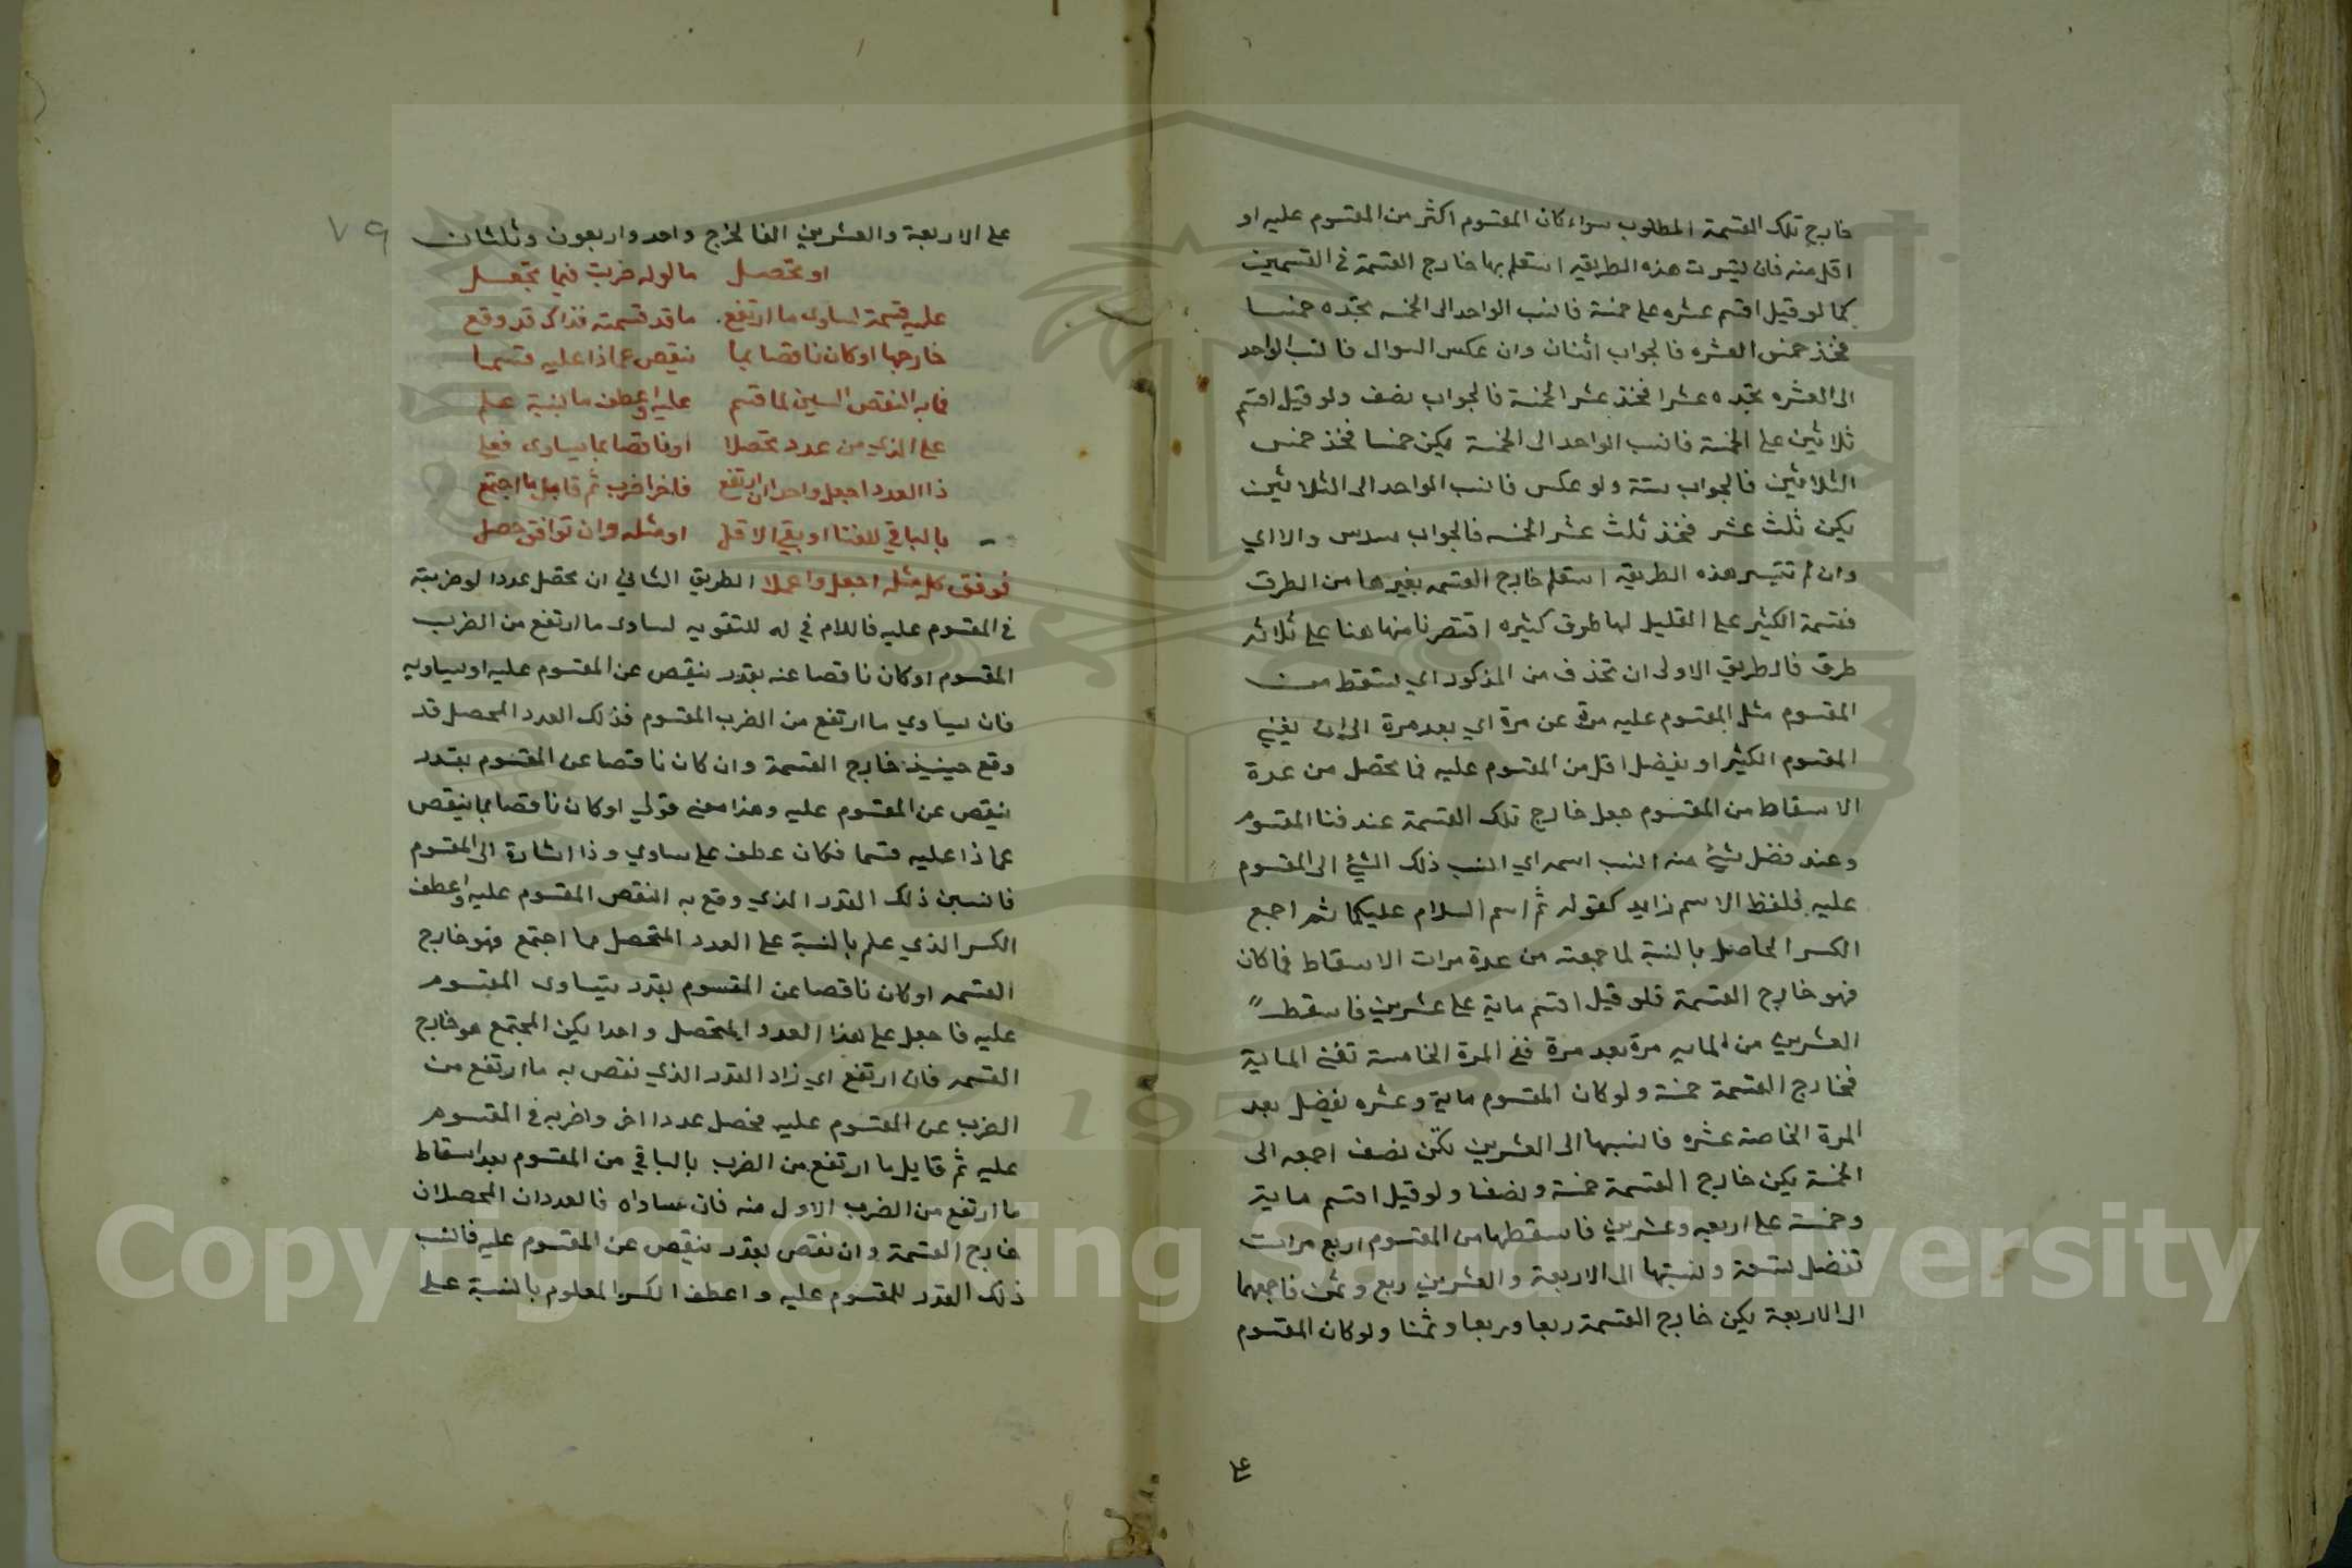 خارج تلك القسمة المطلوب سواء كان المقسوم اكثر من المقسوم عليه او
اقل منه فان تيسرت هذه الطريقه استعلم بها خارج القسمة في القسمين
كما لو قيل اقسم عشره على خمسة فانسب الواحد الى الخمسه تجده خمسا
فخذ خمس العشره فالجواب اثنان وان عكس السوال فانسب الواحد
الى العشره تجده عشرا فخذ عشر الخمسة فالجواب نصف ولو قيل اقسم
ثلاثين على الخمسة فانسب الواحد الى الخمسة يكن خمسا فخذ خمس
الثلاثين فالجواب ستة ولو عكس فانسب الواحد الى الثلاثين
يكن ثلث عشر فخذ ثلث عشر الخمسه فالجواب سدس والا اي
وان لم تتيسر هذه الطريقه استعلم خارج القسمه بغيرها من الطرق
فقسمة الكثير على القليل لها طرق كثيره اقتصرنا منها هنا على ثلاثه
طرق فالطريق الاولى ان تحذف من المذكور اي تسقط من
المقسوم مثل المقسوم عليه مرة عن مرة اي بعد مرة الى ان يفني
المقسوم الكثير او يفضل اقل من المقسوم عليه فما تحصل من عدة
الاسقاط من المقسوم جعل خارج تلك القسمة عند فنا المقسوم
وعند فضل شيئ منه انسب اسمه اي انسب ذلك الشيئ الى المقسوم
عليه فلفظ الاسم زايد كقوله ثم اسم السلام عليكما ثم اجمع
الكسر الحاصل بالنسبة لما جمعته من عدة مرات الاسقاط فما كان
فهو خارج القسمة فلو قيل اقسم ماية على عشرين فاسقط
العشرين من المايه مرة بعد مرة ففي المرة الخامسة تفنى الماية
فخارج القسمة خمسة ولو كان المقسوم ماية وعشره يفضل بعد
المرة الخامسة عشره فانسبها الى العشرين تكن نصف اجمعه الى
الخمسة يكن خارج القسمة خمسة ونصفا ولو قيل اقسم ماية
وخمسة على اربعه وعشرين فاسقطها من المقسوم اربع مرات
تفضل تسعة ونسبتها الى الاربعة والعشرين ربع وثمن فاجمعهما
الى الاربعة يكن خارج القسمة ربعا وربعا وثمنا ولو كان المقسوم
على
٧٩
على الاربعة والعشرين الفا لخرج واحد واربعون وثلثان
او تحصل ما لوله ضربت فيما تجعل
عليه قسمة لساوى ما ارتفع ما قد قسمته فذاك قد وقع
خارجها او كان ناقصا بما ينقص عما ذا عليه قسما
فما به النقص انسبن لما قسم عليه واعطف ما بنسبة علم
على الذي من عدد تحصلا او ناقصا بما يساوى فعلى
ذا العدد اجعل واحدا ان ارتفع فلاخر اضرب ثم قابل ما اجتمع
بالباقي للفنا او بقي الاقل او مثله وان توافق حصل
فوفق كل مثله اجعل واعملا الطريق الثاني ان تحصل عددا لو ضربته
في المقسوم عليه فاللام في له للتقويه لساوى ما ارتفع من الضرب
المقسوم او كان ناقصا عنه بقدر ينقص عن المقسوم عليه او يساويه
فان يساوي ما ارتفع من الضرب المقسوم فذلك العدد المحصل قد
وقع حينيذ خارج القسمة وان كان ناقصا عن المقسوم بقدر
ينقص عن المقسوم عليه وهذا معنى قولي او كان ناقصا بما ينقص
عما ذا عليه قسما فكان عطف على ساوي وذا اشارة الى المقسوم
فانسبن ذلك القدر الذي وقع به النقص المقسوم عليه واعطف
الكسر الذي علم بالنسبة على العدد المتحصل فما اجتمع فهو خارج
القسمه او كان ناقصا عن المقسوم بقدر يتساوى المقسوم
عليه فاجعل على هذا العدد المتحصل واحدا يكن المجتمع هو خارج
القسمه فان ارتفع اي زاد القدر الذي نقص به ما ارتفع من
الضرب عن المقسوم عليه فحصل عددا اخر واضربه في المقسوم
عليه ثم قابل ما ارتفع من الضرب بالباقي من المقسوم بعد اسقاط
ما ارتفع من الضرب الاول منه فان ساواه فالعددان المحصلان
خارج القسمة وان نقص بقدر ينقص عن المقسوم عليه فانسب
ذلك القدر للمقسوم عليه واعطف الكسر المعلوم بالنسبة على
Copyright © King Saud University
195